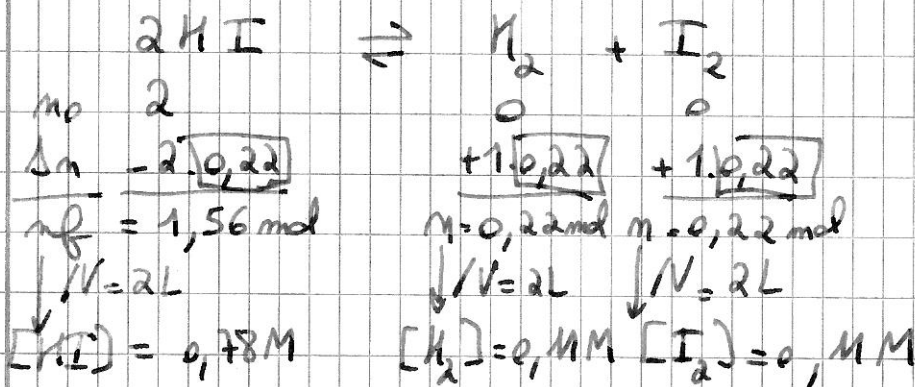 2 HI ⇌ H₂ + I₂
n₀ 2 0 0
Δn -2.0,22 +1.0,22 +1.0,22
nf = 1,56 mol n=0,22 mol n=0,22 mol
↓ /V=2L ↓ /V=2L ↓ /V=2L
[HI] = 0,78M [H₂]=0,11M [I₂]=0,11M